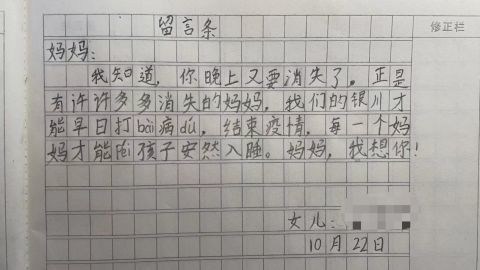 留言条
修正栏
妈妈:
我知道,你晚上又要消失了。正是
有许许多多消失的妈妈,我们的银川才
能早日打bài病dú,结束疫情,每一个妈
妈才能péi孩子安然入睡。妈妈,我想你!
女儿:
10月22日